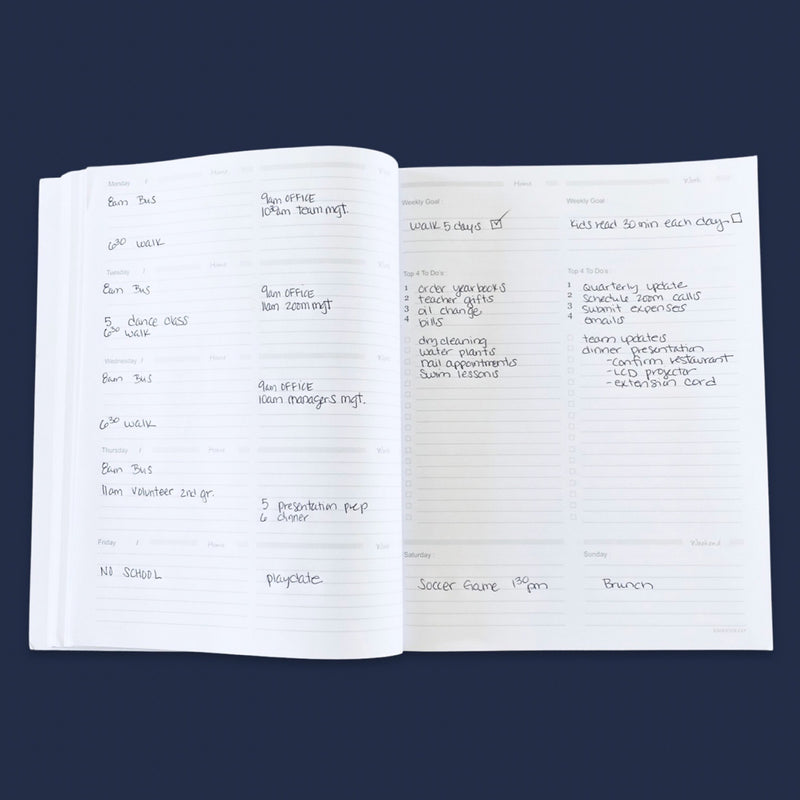 Monday / Home Work
8am Bus
9am OFFICE
10³⁰am team mgt.
6³⁰ walk
Tuesday / Home Work
8am Bus
9am OFFICE
11am zoom mgt
5 dance class
6³⁰ walk
Wednesday / Home Work
8am Bus
9am OFFICE
10am managers mgt.
6³⁰ walk
Thursday / Home Work
8am Bus
11am volunteer 2nd gr.
5 presentation prep
6 dinner
Friday / Home Work
NO SCHOOL
playdate
Home
Weekly Goal:
walk 5 days
Top 4 To Do's:
1 order yearbooks
2 teacher gifts
3 oil change
4 bills
dry cleaning
water plants
nail appointments
swim lessons
Work
Weekly Goal:
Kids read 30 min each day
Top 4 To Do's:
1 quarterly update
2 schedule zoom calls
3 submit expenses
4 emails
team updates
dinner presentation
-confirm restaurant
-LCD projector
-extension cord
Weekend
Saturday:
Soccer Game 1³⁰pm
Sunday
Brunch